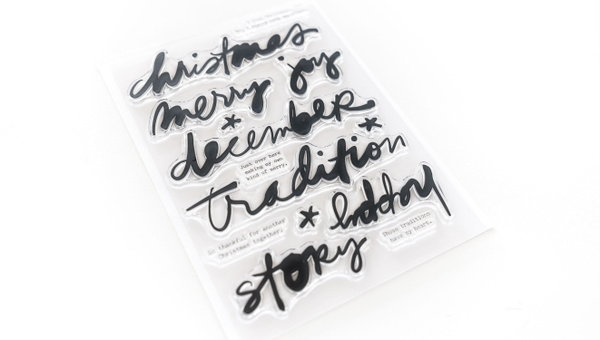 christmas
merry joy
december
Just over here
making my own
kind of merry.
tradition
holiday
So thankful for another
Christmas together.
These traditions
have my heart.
story